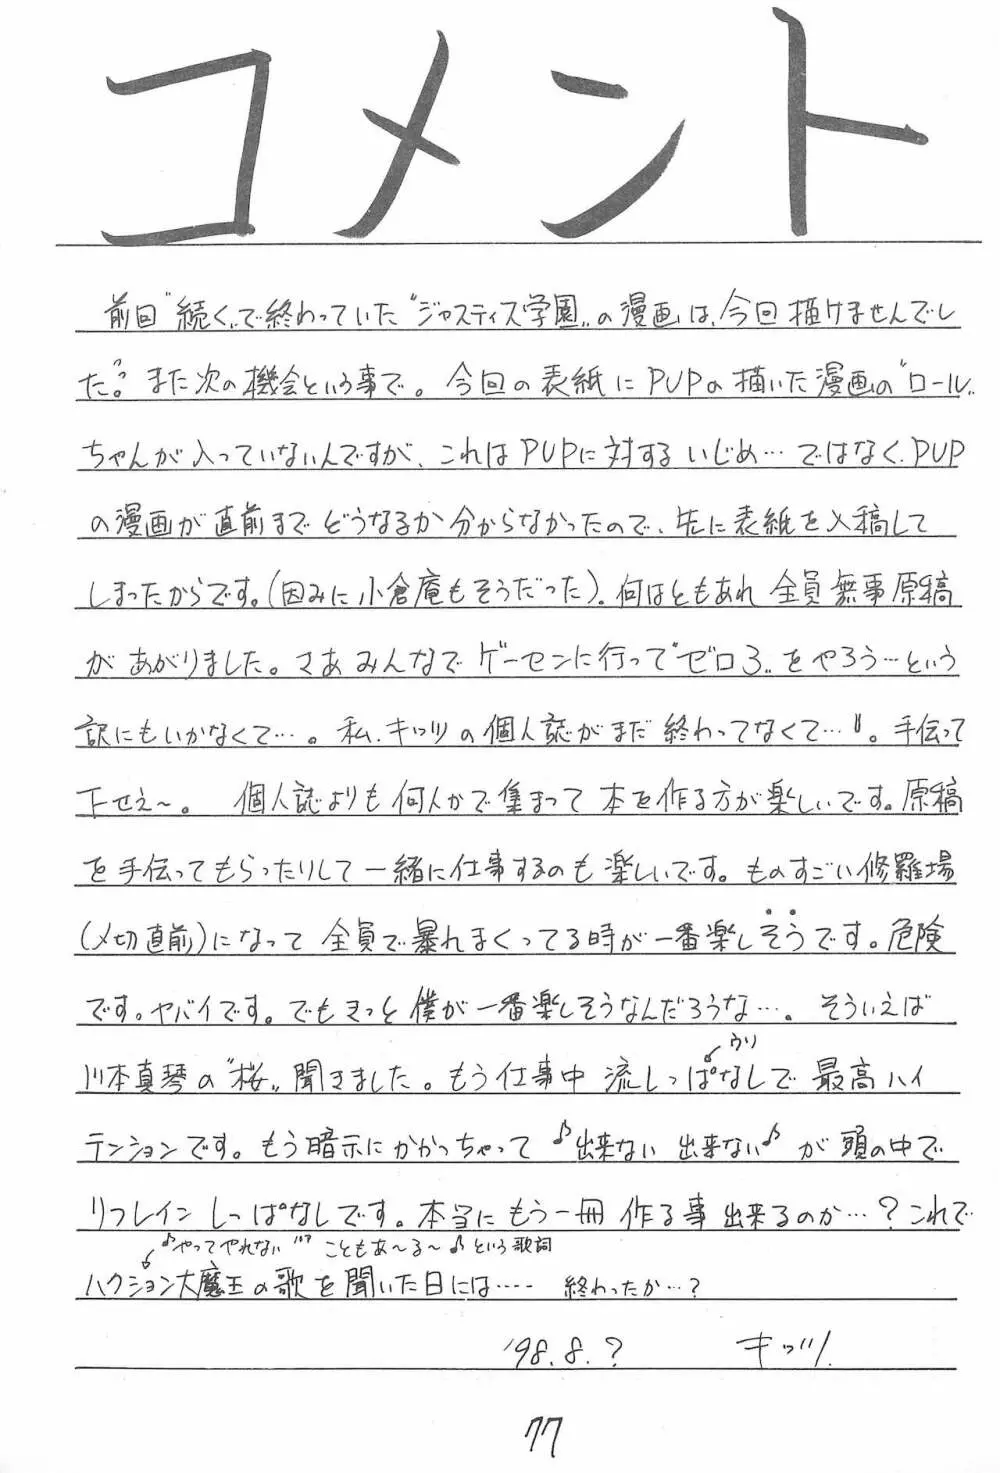 コメント
前回〝続く〟で終わっていた〝ジャスティス学園〟の漫画は、今回描けませんでし
た。また次の機会という事で。今回の表紙にPUPの描いた漫画の〝ロール〟
ちゃんが入っていないんですが、これはPUPに対するいじめ…ではなく、PUP
の漫画が直前までどうなるか分からなかったので、先に表紙を入稿して
しまったからです。(因みに小倉庵もそうだった)。何はともあれ全員無事原稿
があがりました。さあみんなでゲーセンに行って〝ゼロ3〟をやろう…という
訳にもいかなくて…。私、キッツの個人誌がまだ終わってなくて…。手伝って
下せえ〜。 個人誌よりも何人かで集まって本を作る方が楽しいです。原稿
を手伝ってもらったりして一緒に仕事するのも楽しいです。ものすごい修羅場
(〆切直前)になって全員で暴れまくってる時が一番楽しそうです。危険
です。ヤバイです。でもきっと僕が一番楽しそうなんだろうな…。そういえば
ウソ
川本真琴の〝桜〟聞きました。もう仕事中流しっぱなしで最高ハイ
テンションです。もう暗示にかかっちゃって♪出来ない出来ない♪が頭の中で
リフレインしっぱなしです。本当にもう一冊作る事出来るのか…?これで
♪やってやれない こともあ〜る〜♪という歌詞
ハクション大魔王の歌を聞いた日には…… 終わったか…?
'98.8.? キッツ
77